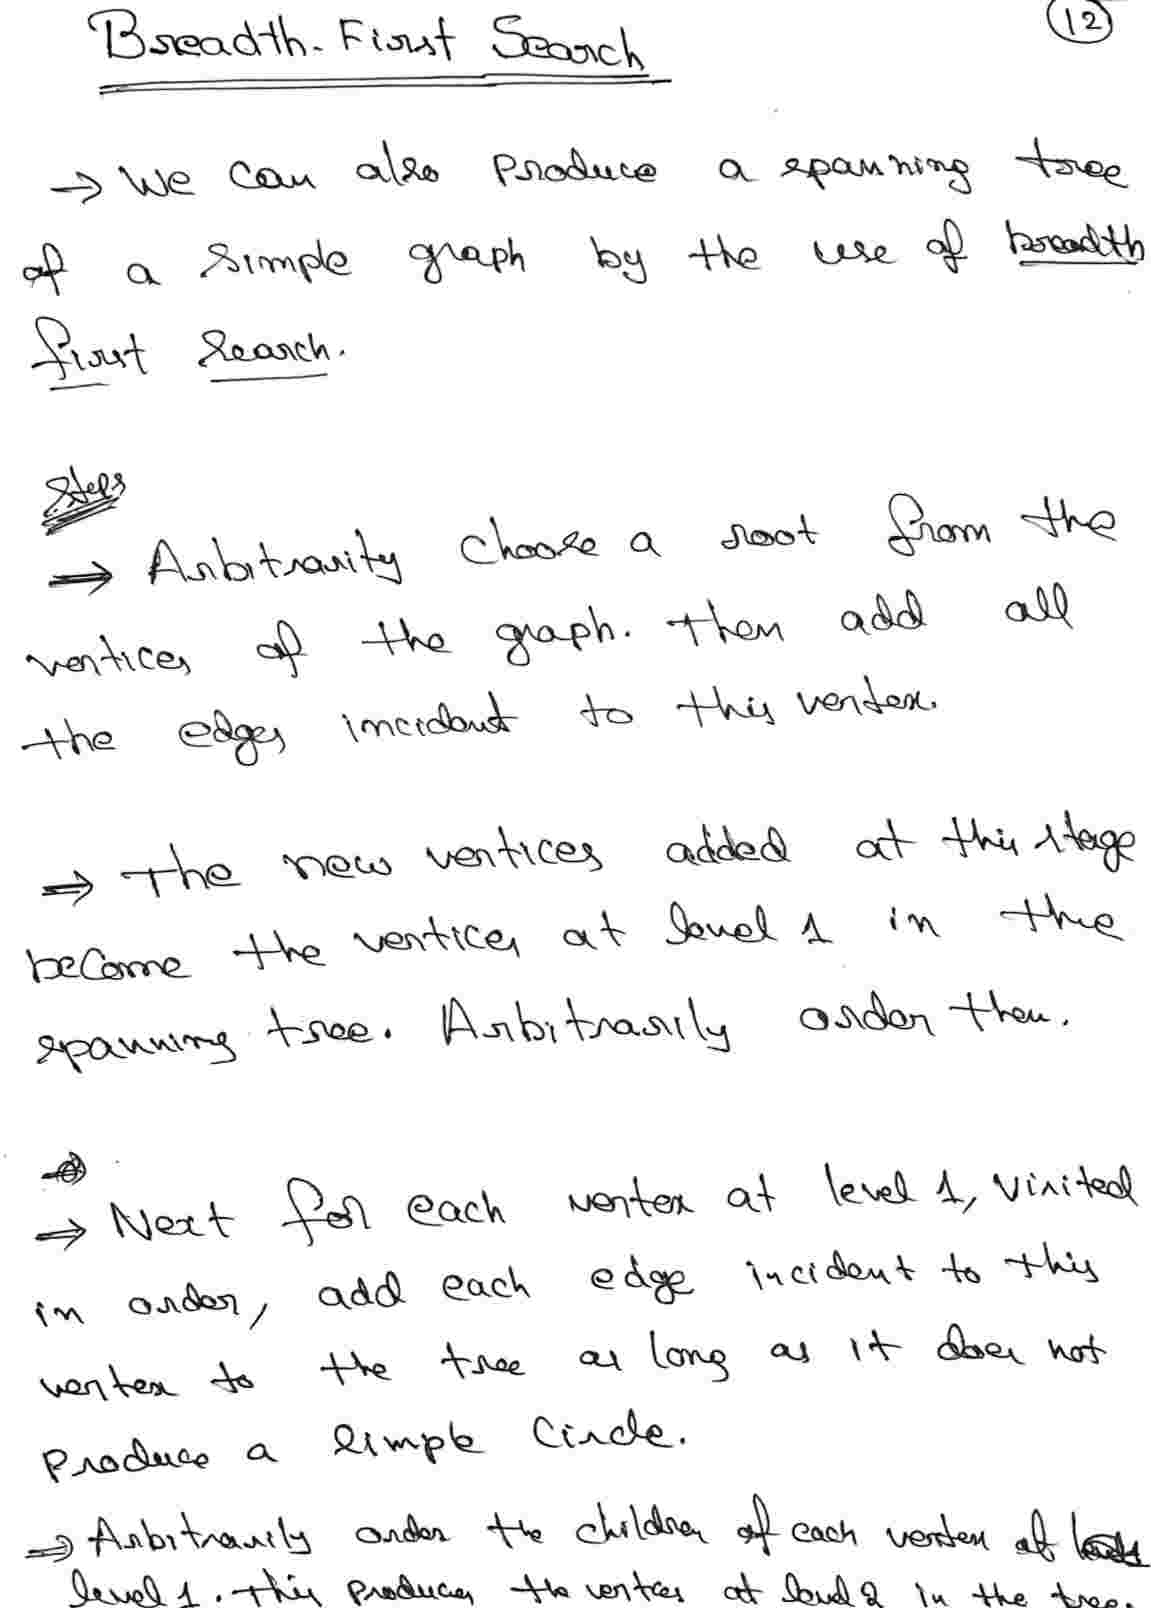 Breadth-First Search
12
→ We can also produce a spanning tree
of a simple graph by the use of breadth
first search.
Steps
⇒ Arbitrarity choose a root from the
vertices of the graph. Then add all
the edges incident to this vertex.
⇒ The new vertices added at this stage
become the vertices at level 1 in the
spanning tree. Arbitrarily order them.
⇒ Next for each vertex at level 1, visited
in order, add each edge incident to this
vertex to the tree as long as it does not
produce a simple circle.
⇒ Arbitrarily order the children of each vertex at
level 1. This produces the vertices at level 2 in the tree.